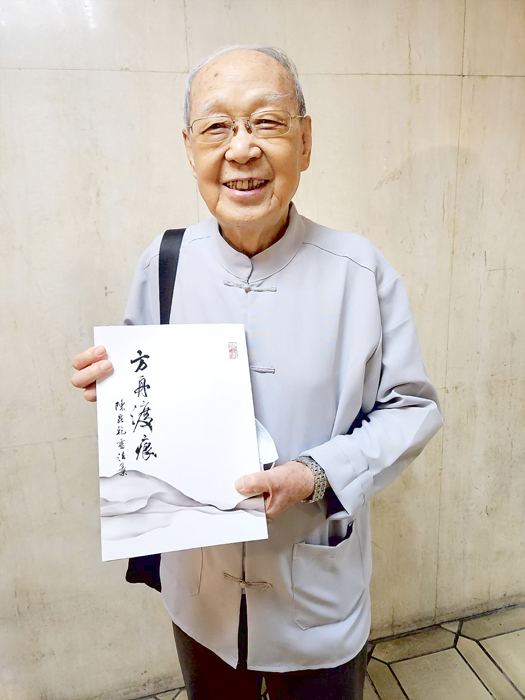 方舟渡痕
陳昆乾書法集